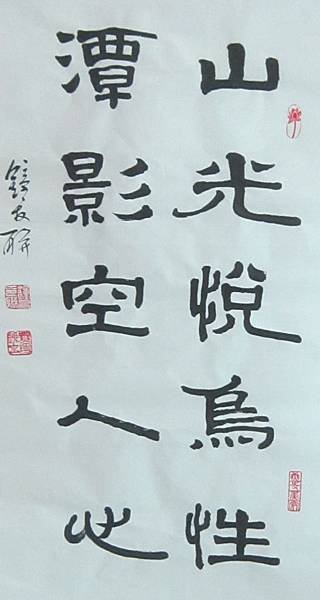 山光悅鳥性
潭影空人心
友聯